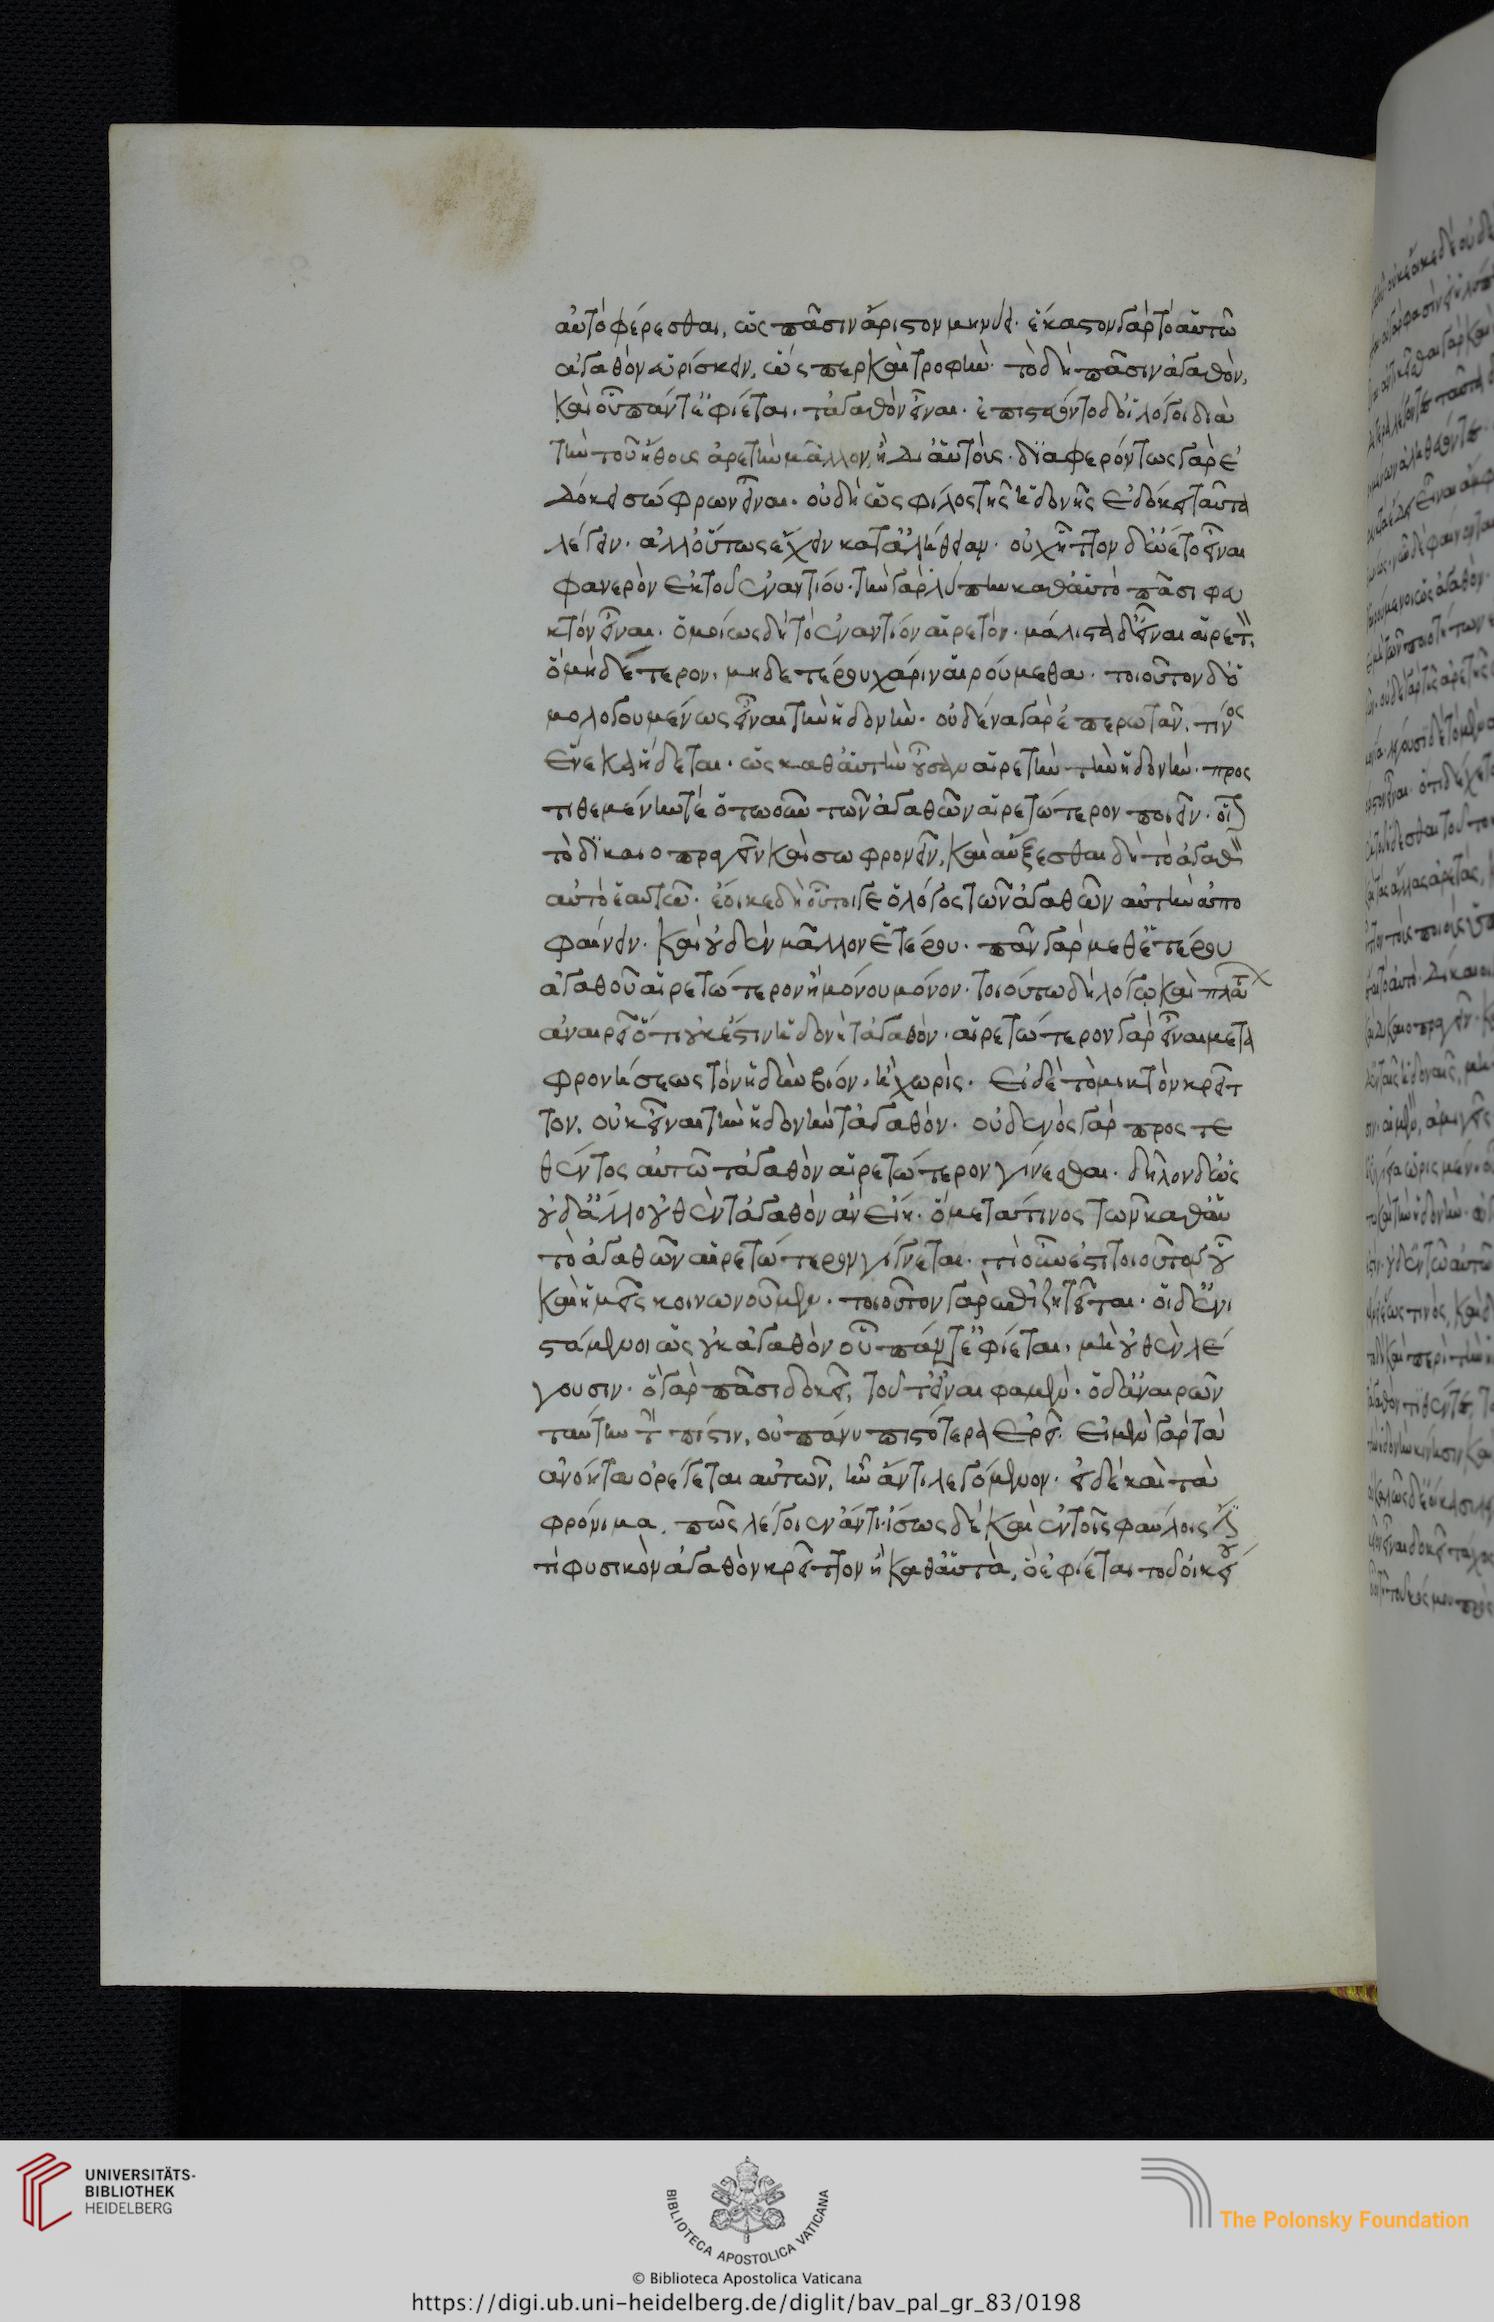 αὐτὸ φέρεσθαι, ὡς πᾶσιν ἄριστον μηνύει· ἕκαστον γὰρ τὸ αὑτῶ
ἀγαθὸν εὑρίσκειν, ὥς περ καὶ τροφὴν· τὸ δὴ πᾶσιν ἀγαθὸν,
καὶ οὗ πάντ' ἐφίεται, τἀγαθὸν εἶναι· ἐπιστεύοντο δ' οἱ λόγοι διὰ
τὴν τοῦ ἤθους ἀρετὴν μᾶλλον, ἢ δι αὑτοὺς· διαφερόντως γὰρ ἐ
δόκει σώφρων εἶναι· οὐ δὴ ὡς φίλος τῆς ἡδονῆς ἐδόκει ταῦτα
λέγειν· ἀλλ' οὕτως ἔχειν κατ' ἀλήθειαν· οὐχ ἧττον δ' ὤετο εἶναι
φανερὸν ἐκ τοῦ ἐναντίου· τὴν γὰρ λύπην καθ' αὑτὸ πᾶσι φευ
κτὸν εἶναι· ὁμοίως δὴ τὸ ἐναντίον αἱρετόν· μάλιστα δ' εἶναι αἱρετ
ὃ μὴ δι' ἕτερον, μηδ' ἑτέρου χάριν αἱρούμεθα· τοιοῦτον δ' ὁ
μολογουμένως εἶναι τὴν ἡδονὴν· οὐδένα γὰρ ἐπερωτᾶν, τίνος
ἕνεκα ἥδεται· ὡς καθ' αὑτὴν οὖσαν αἱρετὴν τὴν ἡδονὴν· προς
τιθεμένην τε ὁτωοῦν τῶν ἀγαθῶν αἱρετώτερον ποιεῖν· οἷον
τὸ δικαιοπραγεῖν καὶ σωφρονεῖν, καὶ αὔξεσθαι δὴ τὸ ἀγαθὸν
αὐτὸ ἑαυτῶ· ἔοικε δὴ οὗτός γε ὁ λόγος τῶν ἀγαθῶν αὐτὴν ἀπο
φαίνειν· καὶ οὐδὲν μᾶλλον ἑτέρου· πᾶν γὰρ μεθ' ἑτέρου
ἀγαθοῦ αἱρετώτερον ἢ μονούμενον· τοιούτω δὴ λόγω καὶ πλάτων
ἀναιρεῖ ὅτι οὐκ ἔστιν ἡδονὴ τἀγαθὸν· αἱρετώτερον γὰρ εἶναι μετὰ
φρονήσεως τὸν ἡδὺν βίον, ἢ χωρὶς· εἰ δὲ τὸ μικτὸν κρεῖτ
τον, οὐκ εἶναι τὴν ἡδονὴν τἀγαθὸν· οὐδενὸς γὰρ προστε
θέντος αὐτῶ τἀγαθὸν αἱρετώτερον γίνεσθαι· δῆλον δ' ὡς
οὐδ' ἄλλο οὐθὲν τἀγαθὸν ἂν εἴη· ὃ μετά τινος τῶν καθ' αὑ
τὸ ἀγαθῶν αἱρετώτερον γίγνεται· τί οὖν ἐστι τοιοῦτον οὗ
καὶ ἡμεῖς κοινωνοῦμεν· τοιοῦτον γὰρ ἐπιζητεῖται· οἱ δ' ἐνι
στάμενοι ὡς οὐκ ἀγαθὸν οὗ πάντ' ἐφίεται, μὴ οὐθὲν λέ
γουσιν· ὃ γὰρ πᾶσι δοκεῖ, τοῦτ' εἶναι φαμὲν· ὁ δ' ἀναιρῶν
ταύτην τὴν πίστιν, οὐ πάνυ πιστότερα ἐρεῖ· εἰ μὲν γὰρ τὰ
ἀνόητα ὀρέγεται αὐτῶν, ἦν ἄν τι λεγόμενον· εἰ δὲ καὶ τὰ
φρόνιμα, πῶς λέγοιεν ἄν τι· ἴσως δὲ καὶ ἐν τοῖς φαύλοις ἐστί
τι φυσικὸν ἀγαθὸν κρεῖττον ἢ καθ' αὑτὰ, ὃ ἐφίεται τοῦ οἰκείου
UNIVERSITÄTS-
BIBLIOTHEK
HEIDELBERG
BIBLIOTECA APOSTOLICA VATICANA
The Polonsky Foundation
© Biblioteca Apostolica Vaticana
https://digi.ub.uni-heidelberg.de/diglit/bav_pal_gr_83/0198